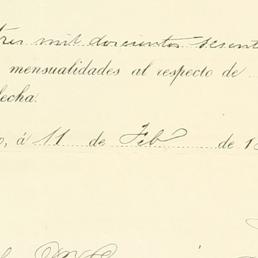 tres mil doscientos sesent
mensualidades al respecto de
fecha.
o, á 11 de Feb de 1